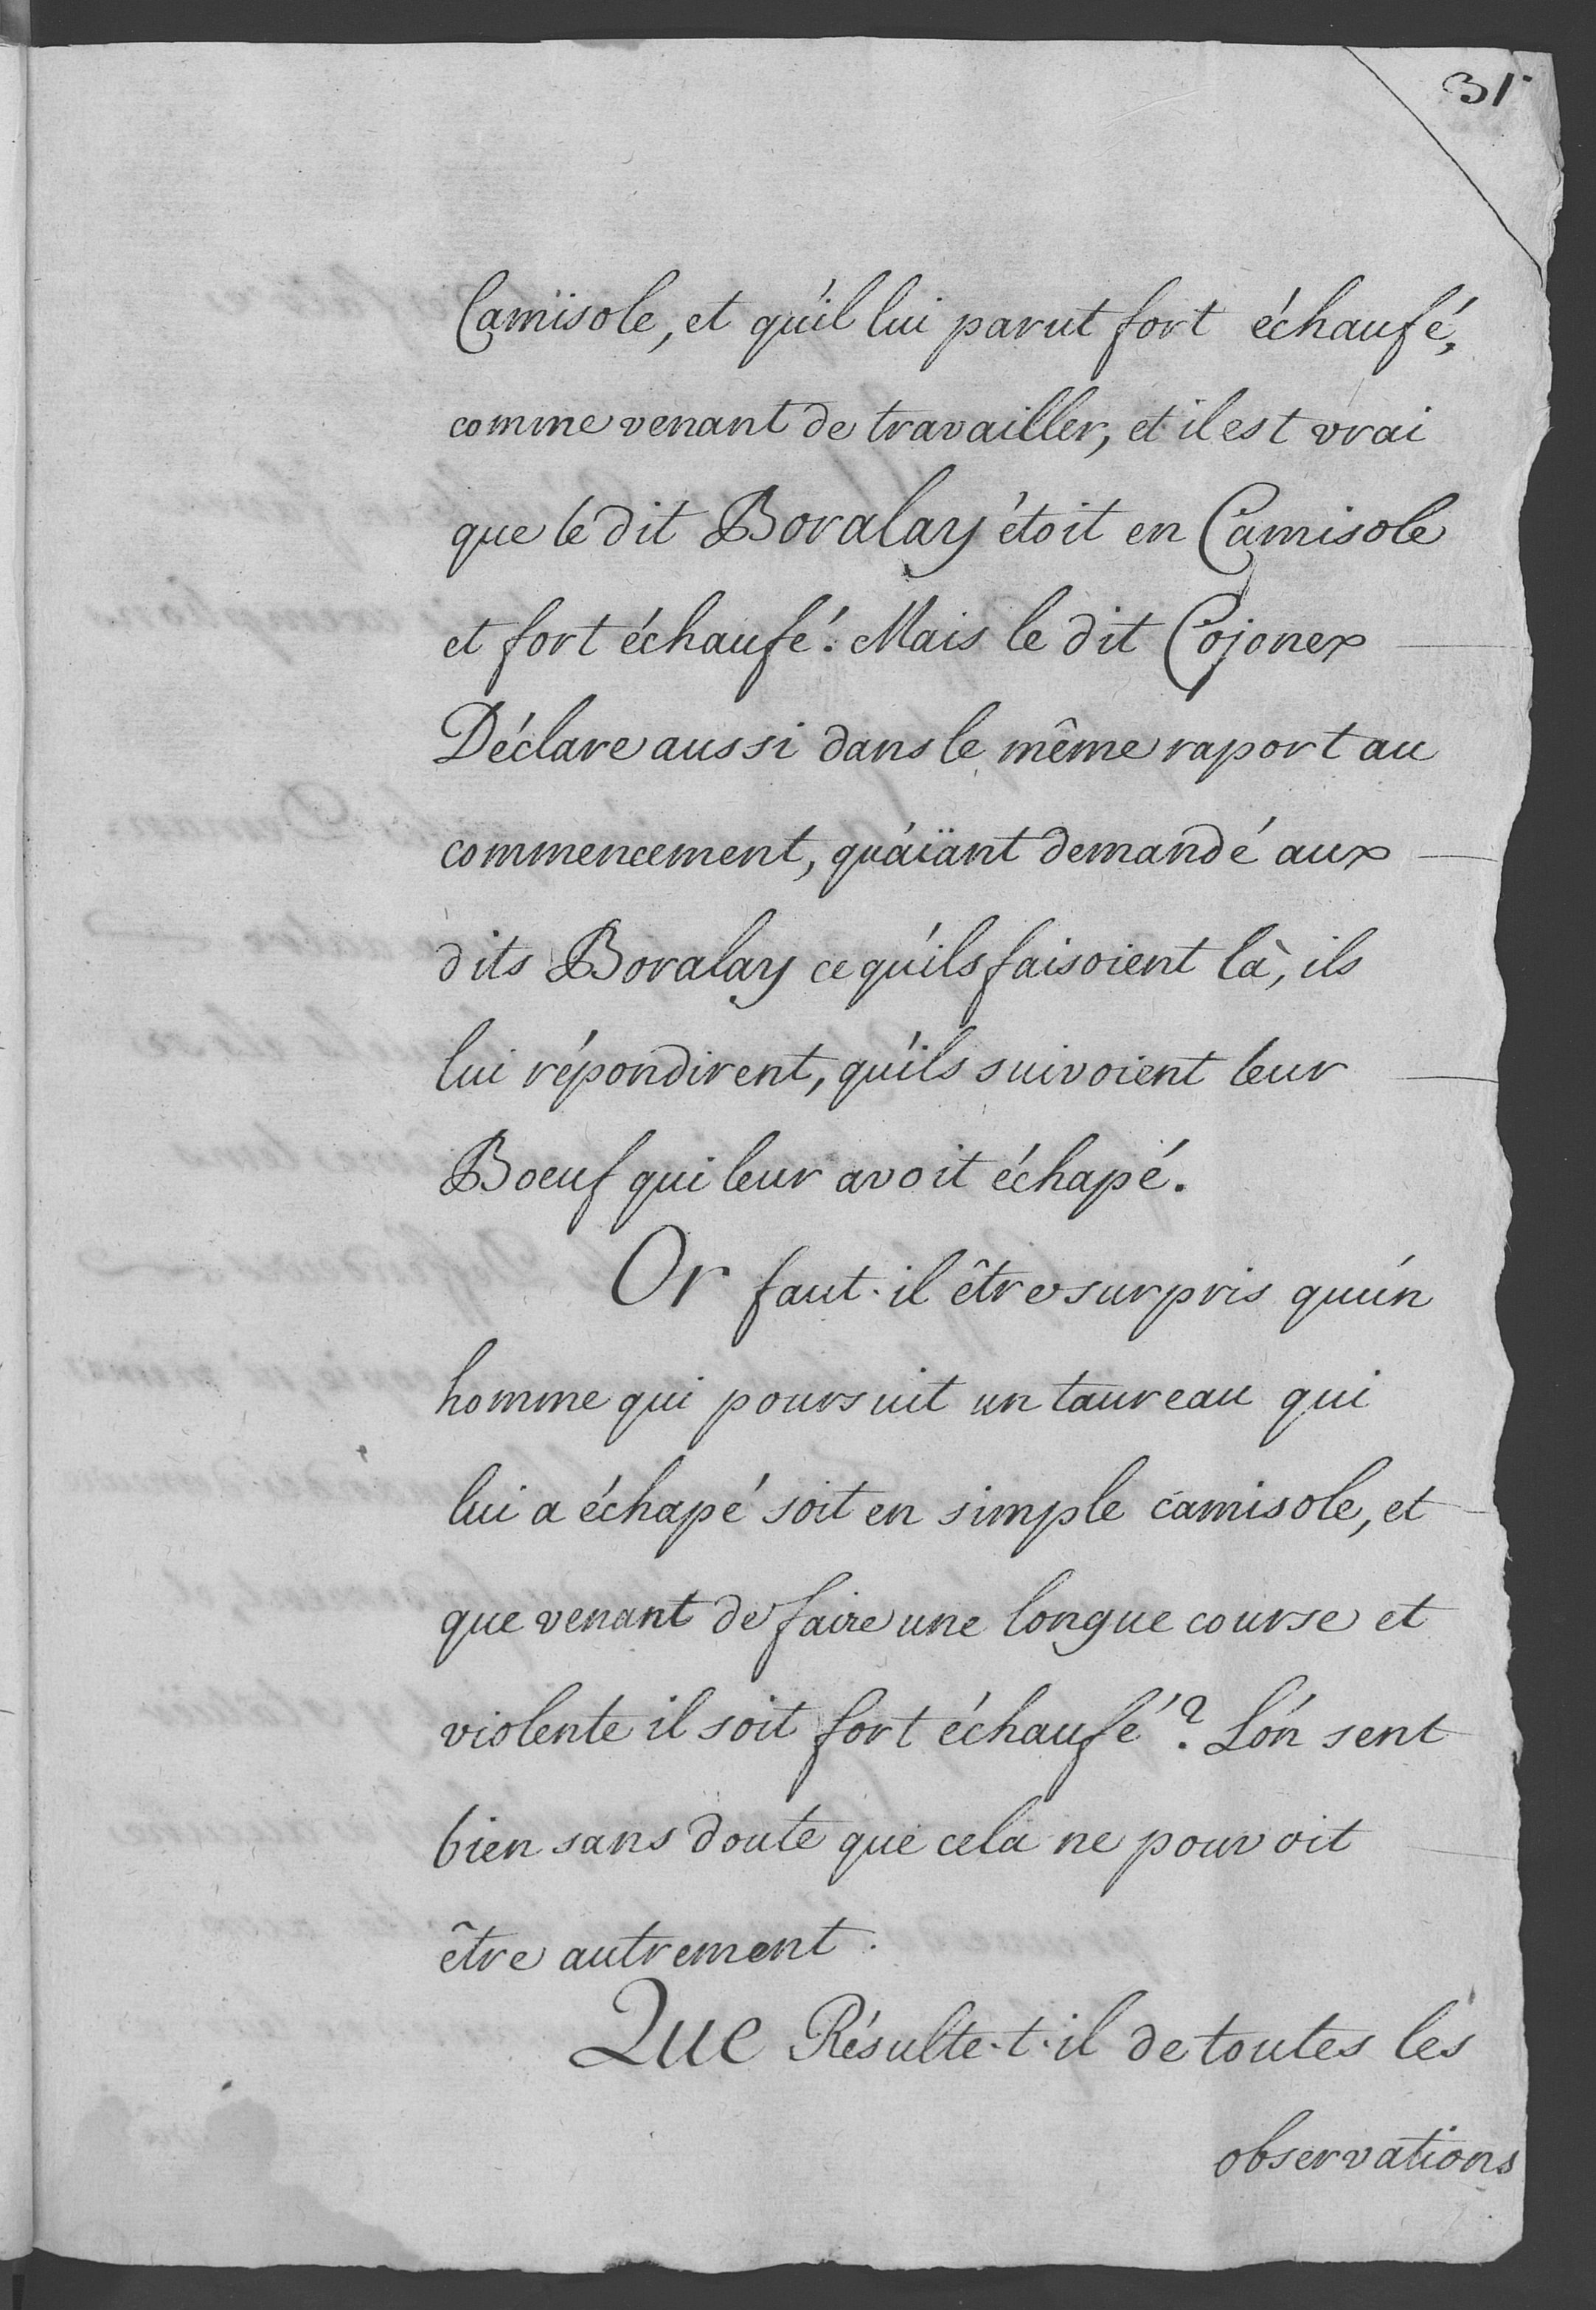 31.
Camisole, et qu'il lui parut fort échaufé,
comme venant de travailler, et il est vrai
que le dit Boralay étoit en Camisole
et fort échaufé. Mais le dit Cojonex
Déclare aussi dans le même raport au
commencement, qu'aïant demandé aux
dits Boralay ce qu'ils faisoient là, ils
lui répondirent, qu'ils suivoient leur
Boeuf qui leur avoit échapé.
Or faut-il être surpris qu'un
homme qui poursuit un taureau qui
lui a échapé soit en simple camisole, et
que venant de faire une longue course et
violente il soit fort échaufé? L'on sent
bien sans doute que cela ne pouvoit
être autrement.
Que Résulte-t-il de toutes les
observations